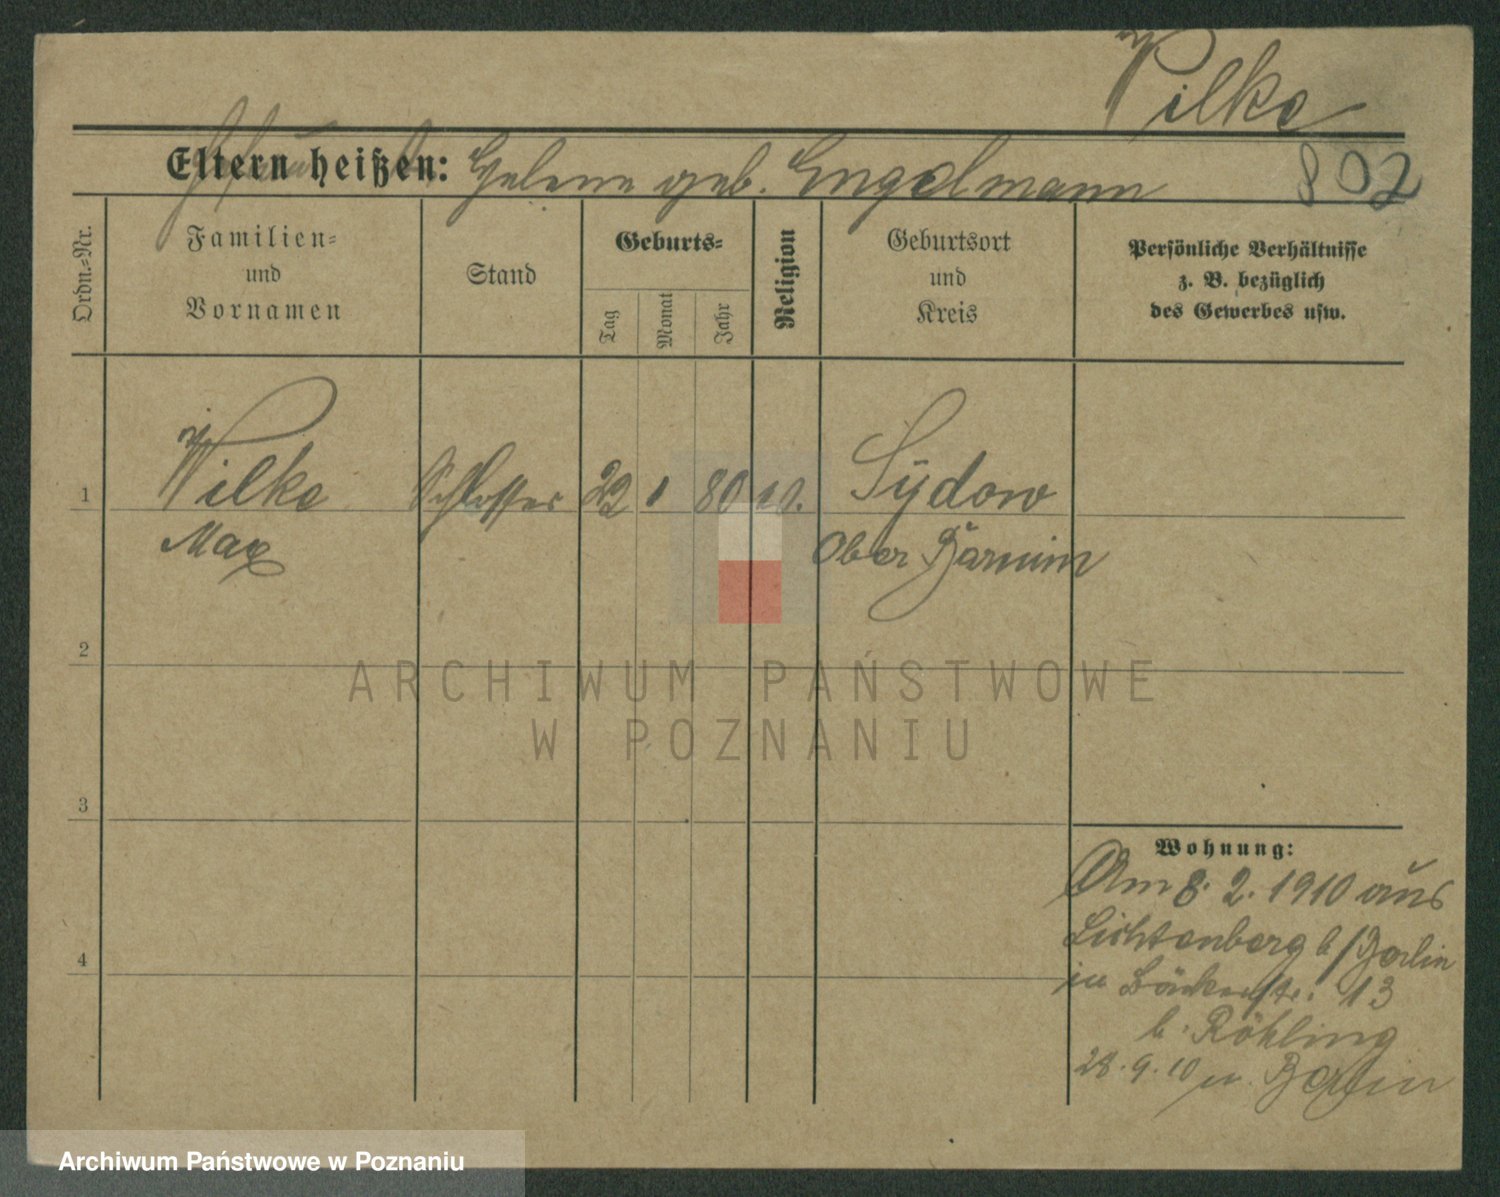 Wilke
Eltern heißen: Helene geb. Engelmann
802
Ordn.=Nr.
Familien=
und
Vornamen
Stand
Geburts=
Tag
Monat
Jahr
Religion
Geburtsort
und
Kreis
Persönliche Verhältnisse
z. B. bezüglich
des Gewerbes usw.
1 Wilke Schlosser 22 1 80 Sydow
Max Ober Barnim
2
3
4
Wohnung:
Am 8. 2. 1910 aus
Lichtenberg b/Berlin
in Bäckerstr. 13
b. Röhling
28.9.10 n. Berlin
ARCHIWUM PAŃSTWOWE
W POZNANIU
Archiwum Państwowe w Poznaniu